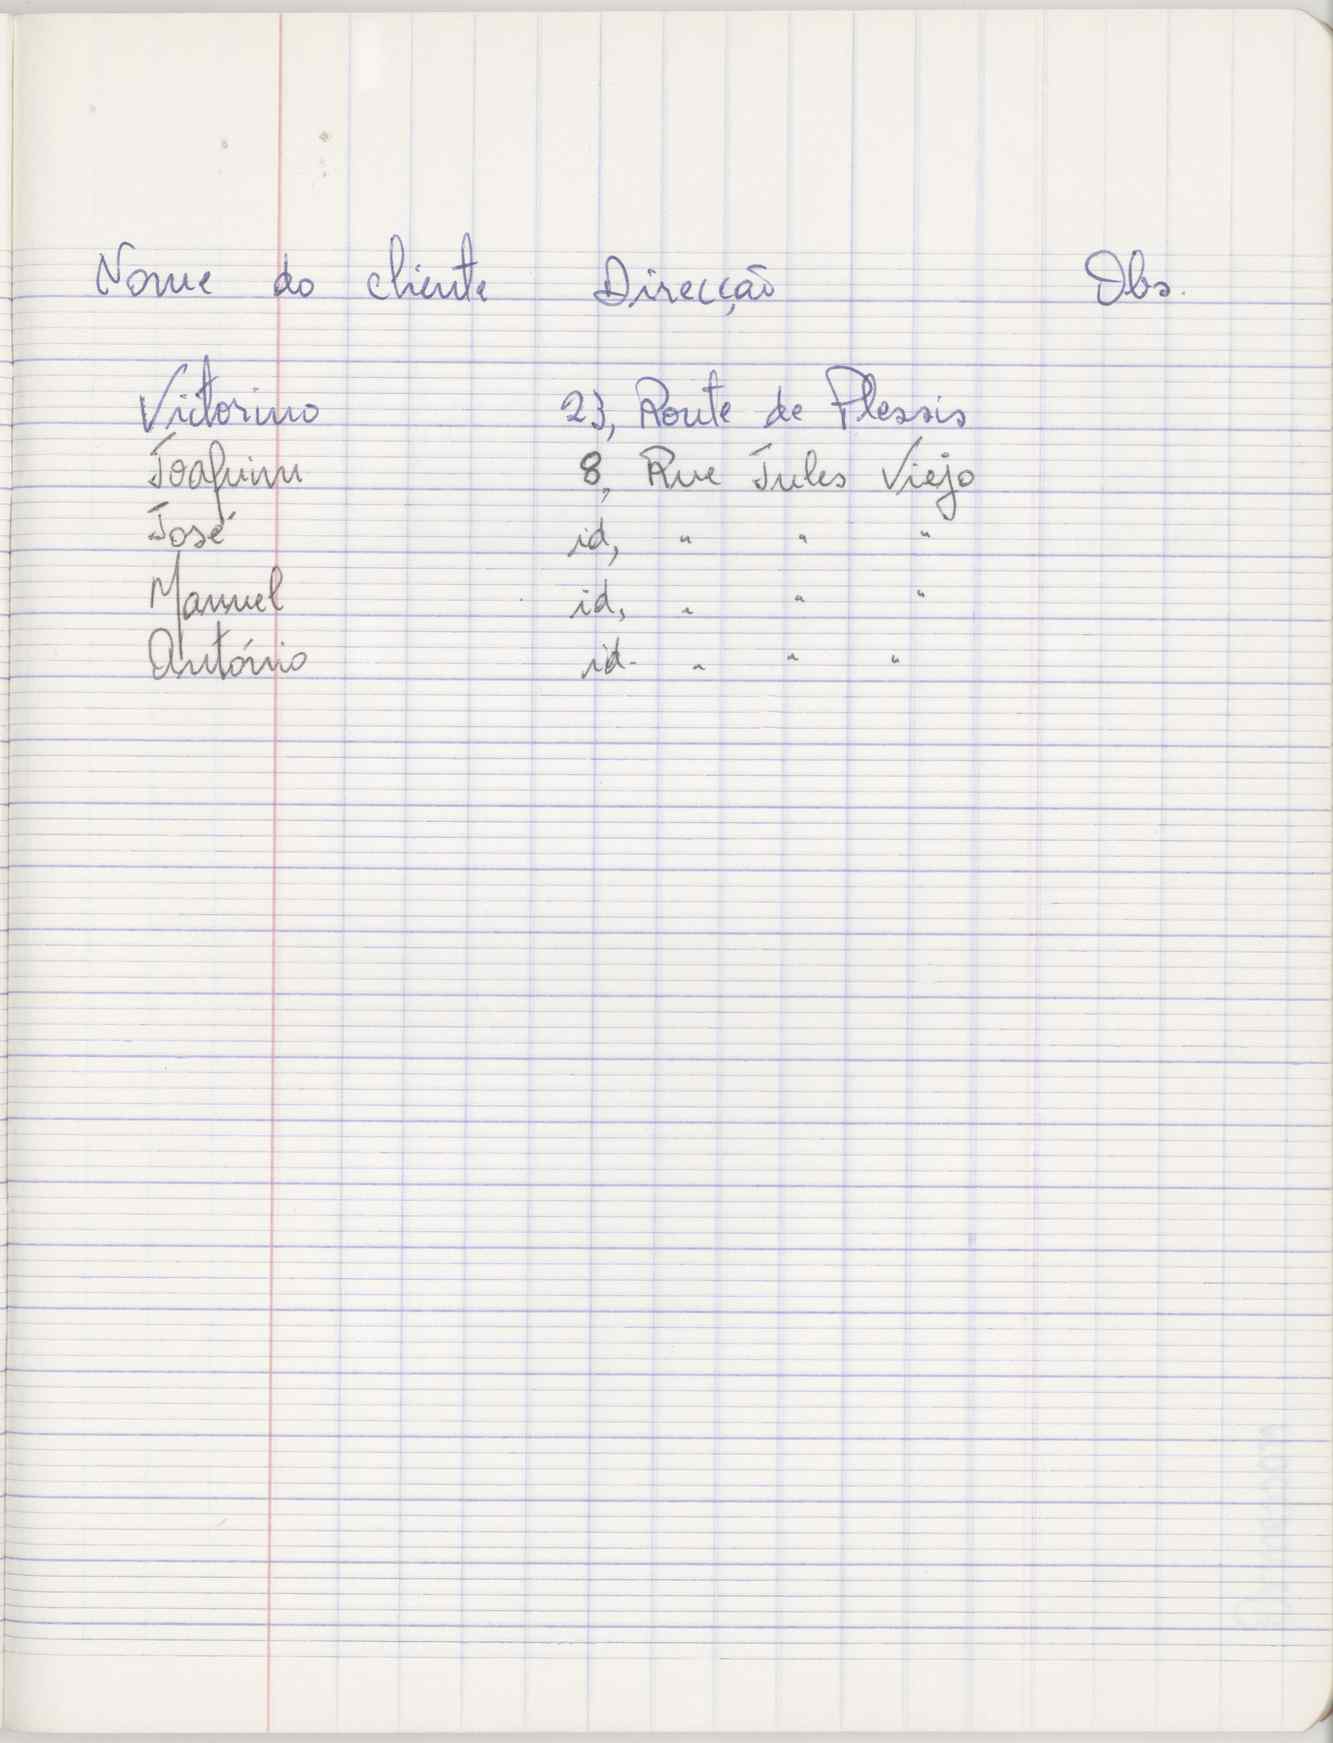 Nome do cliente Direcção Obs.
Victorino 23, Route de Plessis
Joaquim 8, Rue Jules Viejo
José id, " " "
Manuel id, " " "
António id- " " "